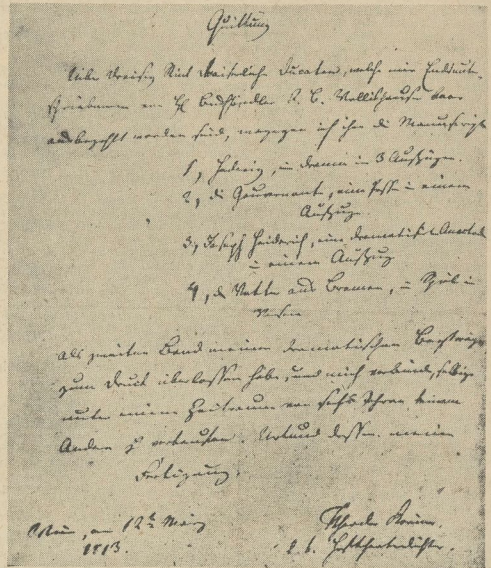 Quittung
Über dreißig Stück Kaiserliche Ducaten, welche mir Endesunter-
schriebenem von H. Buchhändler J. B. Wallishausser baar
ausbezahlt worden sind, wogegen ich ihm die Manuscripte
1, Hedwig, ein Drama in 3 Aufzügen.
2, die Gouvernante, eine Posse in einem
Aufzuge.
3, Joseph Heiderich, eine dramatisirte Anecdote
in einem Aufzug
4, der Vetter aus Bremen, ein Spiel in
Versen
als zweiten Band meiner dramatischen Beyträge
zum Druck überlassen habe, und mich verbinde, selbige
unter einem Zeitraum von sechs Jahren keinem
Andern zu verkaufen. Urkund dessen meine
Fertigung.
Wien, am 12t März
1813.
Theodor Körner.
k. k. Hoftheaterdichter.